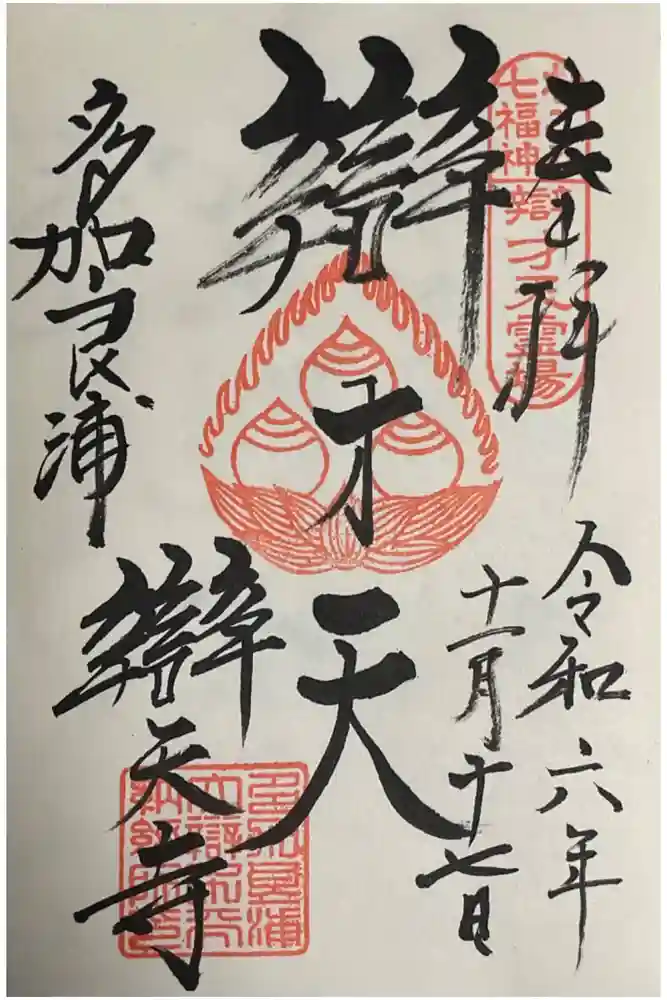 奉拝
七福神
辯才天霊場
令和六年
十一月十七日
辯才天
多加良浦
辯天寺